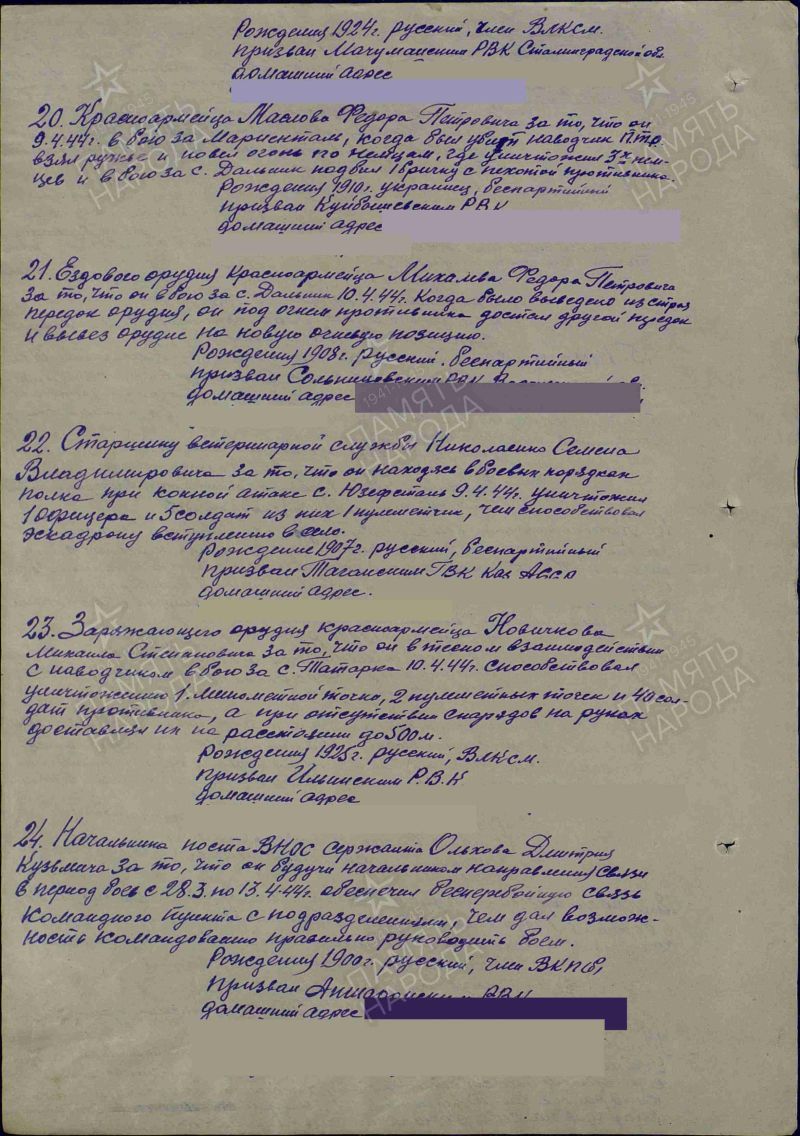 Рождения 1924г. русский, член ВЛКСМ.
призван РВК Сталинградской обл.
домашний адрес
20. Красноармейца Маслова Федора Петровича за то, что он
9.4.44г. в бою за Мариенталь, когда был убит наводчик П.т.р.
взял ружье и повел огонь по немцам, где уничтожил 3х нем-
цев и в бою за с. Дальник подбил 1 бричку с пехотой противника.
Рождения 1910г. украинец, беспартийный
призван Куйбышевским РВК
домашний адрес
21. Ездового орудия красноармейца Михалева Федора Петровича
за то, что он в бою за с. Дальник 10.4.44г. Когда было выведено из строя
передок орудия, он под огнем противника достал другой передок
и вывез орудие на новую огневую позицию.
Рождения 1908г. русский. беспартийный
призван РВК
домашний адрес
22. Старшину ветеринарной службы Николаенко Семена
Владимировича за то, что он находясь в боевых порядках
полка при конной атаке с. Юзефсталь 9.4.44г. уничтожил
1 офицера и 5 солдат из них 1 пулеметчик, чем способствовал
эскадрону вступлению в село.
Рождение 1907г. русский, беспартийный
призван Таганским ГВК Каз АССР
домашний адрес.
23. Заряжающего орудия красноармейца Новичкова
Михаила Степановича за то, что он в тесном взаимодействии
с наводчиком в бою за с. Татарка 10.4.44г. способствовал
уничтожению 1. минометной точки, 2 пулеметных точек и 40 сол-
дат противника, а при отсутствии снарядов на руках
доставлял их на расстоянии до 500 м.
Рождения 1925г. русский, ВЛКСМ.
призван Ильинским Р.В.К
домашний адрес
24. Начальника поста ВНОС сержанта Ольхова Дмитрия
Кузьмича за то, что он будучи начальником направления связи
в период боев с 28.3. по 13.4.44г. обеспечил бесперебойную связь
командного пункта с подразделениями, чем дал возмож-
ность командованию правильно руководить боем.
Рождения 1900г. русский, член ВКП(б)
призван РВК
домашний адрес
ПАМЯТЬ
НАРОДА
1941-1945